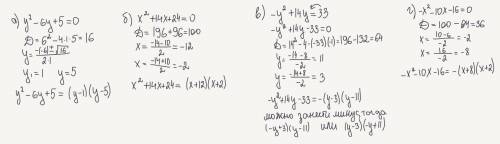 а) y²-6y+5=0
D=6²-4·1·5=16
y=(-(-6)±√16)/(2·1)
y₁=1 y=5
y²-6y+5=(y-1)(y-5)
б) x²+14x+24=0
D=196+96=100
x=(-14-10)/2=-12
x=(-14+10)/2=-2
x²+14x+24=(x+12)(x+2)
в) -y²+14y=33
-y²+14y-33=0
D=14²-4·(-33)(-1)=196-132=64
y=(-14-8)/(-2)=11
y=(-14+8)/(-2)=3
-y²+14y-33=-(y-3)(y-11)
можно занести минус, тогда
(-y+3)(y-11) или (y-3)(-y+11)
г) -x²-10x-16=0
D=100-64=36
x=(10-6)/(-2)=-2
x=16/(-2)=-8
-x²-10x-16=-(x+8)(x+2)